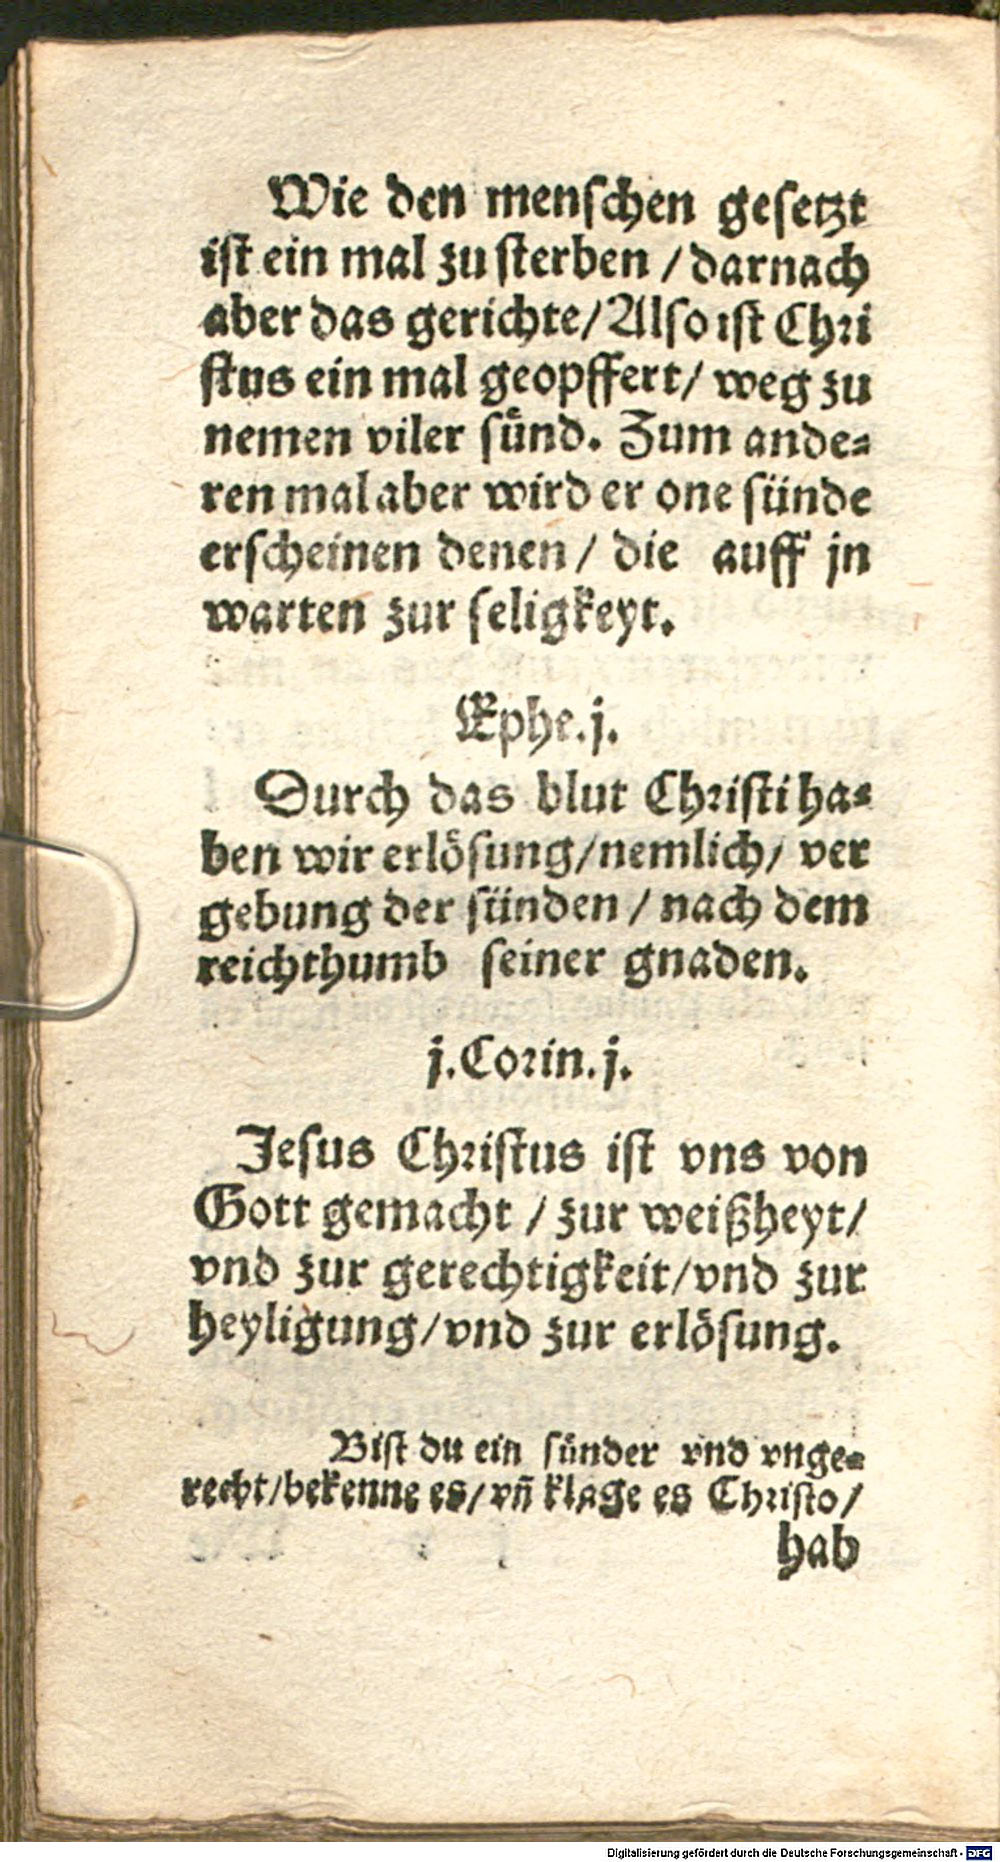 Wie den menschen gesetzt
ist ein mal zu sterben / darnach
aber das gerichte / Also ist Chri
stus ein mal geopffert / weg zu
nemen viler sünd. Zum ande⸗
ren mal aber wird er one sünde
erscheinen denen / die auff jn
warten zur seligkeyt.
Ephe. j.
Durch das blut Christi ha⸗
ben wir erlösung / nemlich / ver
gebung der sünden / nach dem
reichthumb seiner gnaden.
j. Corin. j.
Jesus Christus ist vns von
Gott gemacht / zur weißheyt /
vnd zur gerechtigkeit / vnd zur
heyligung / vnd zur erlösung.
Bist du ein sünder vnd vnge⸗
recht / bekenne es / vñ klage es Christo /
hab
Digitalisierung gefördert durch die Deutsche Forschungsgemeinschaft - DFG